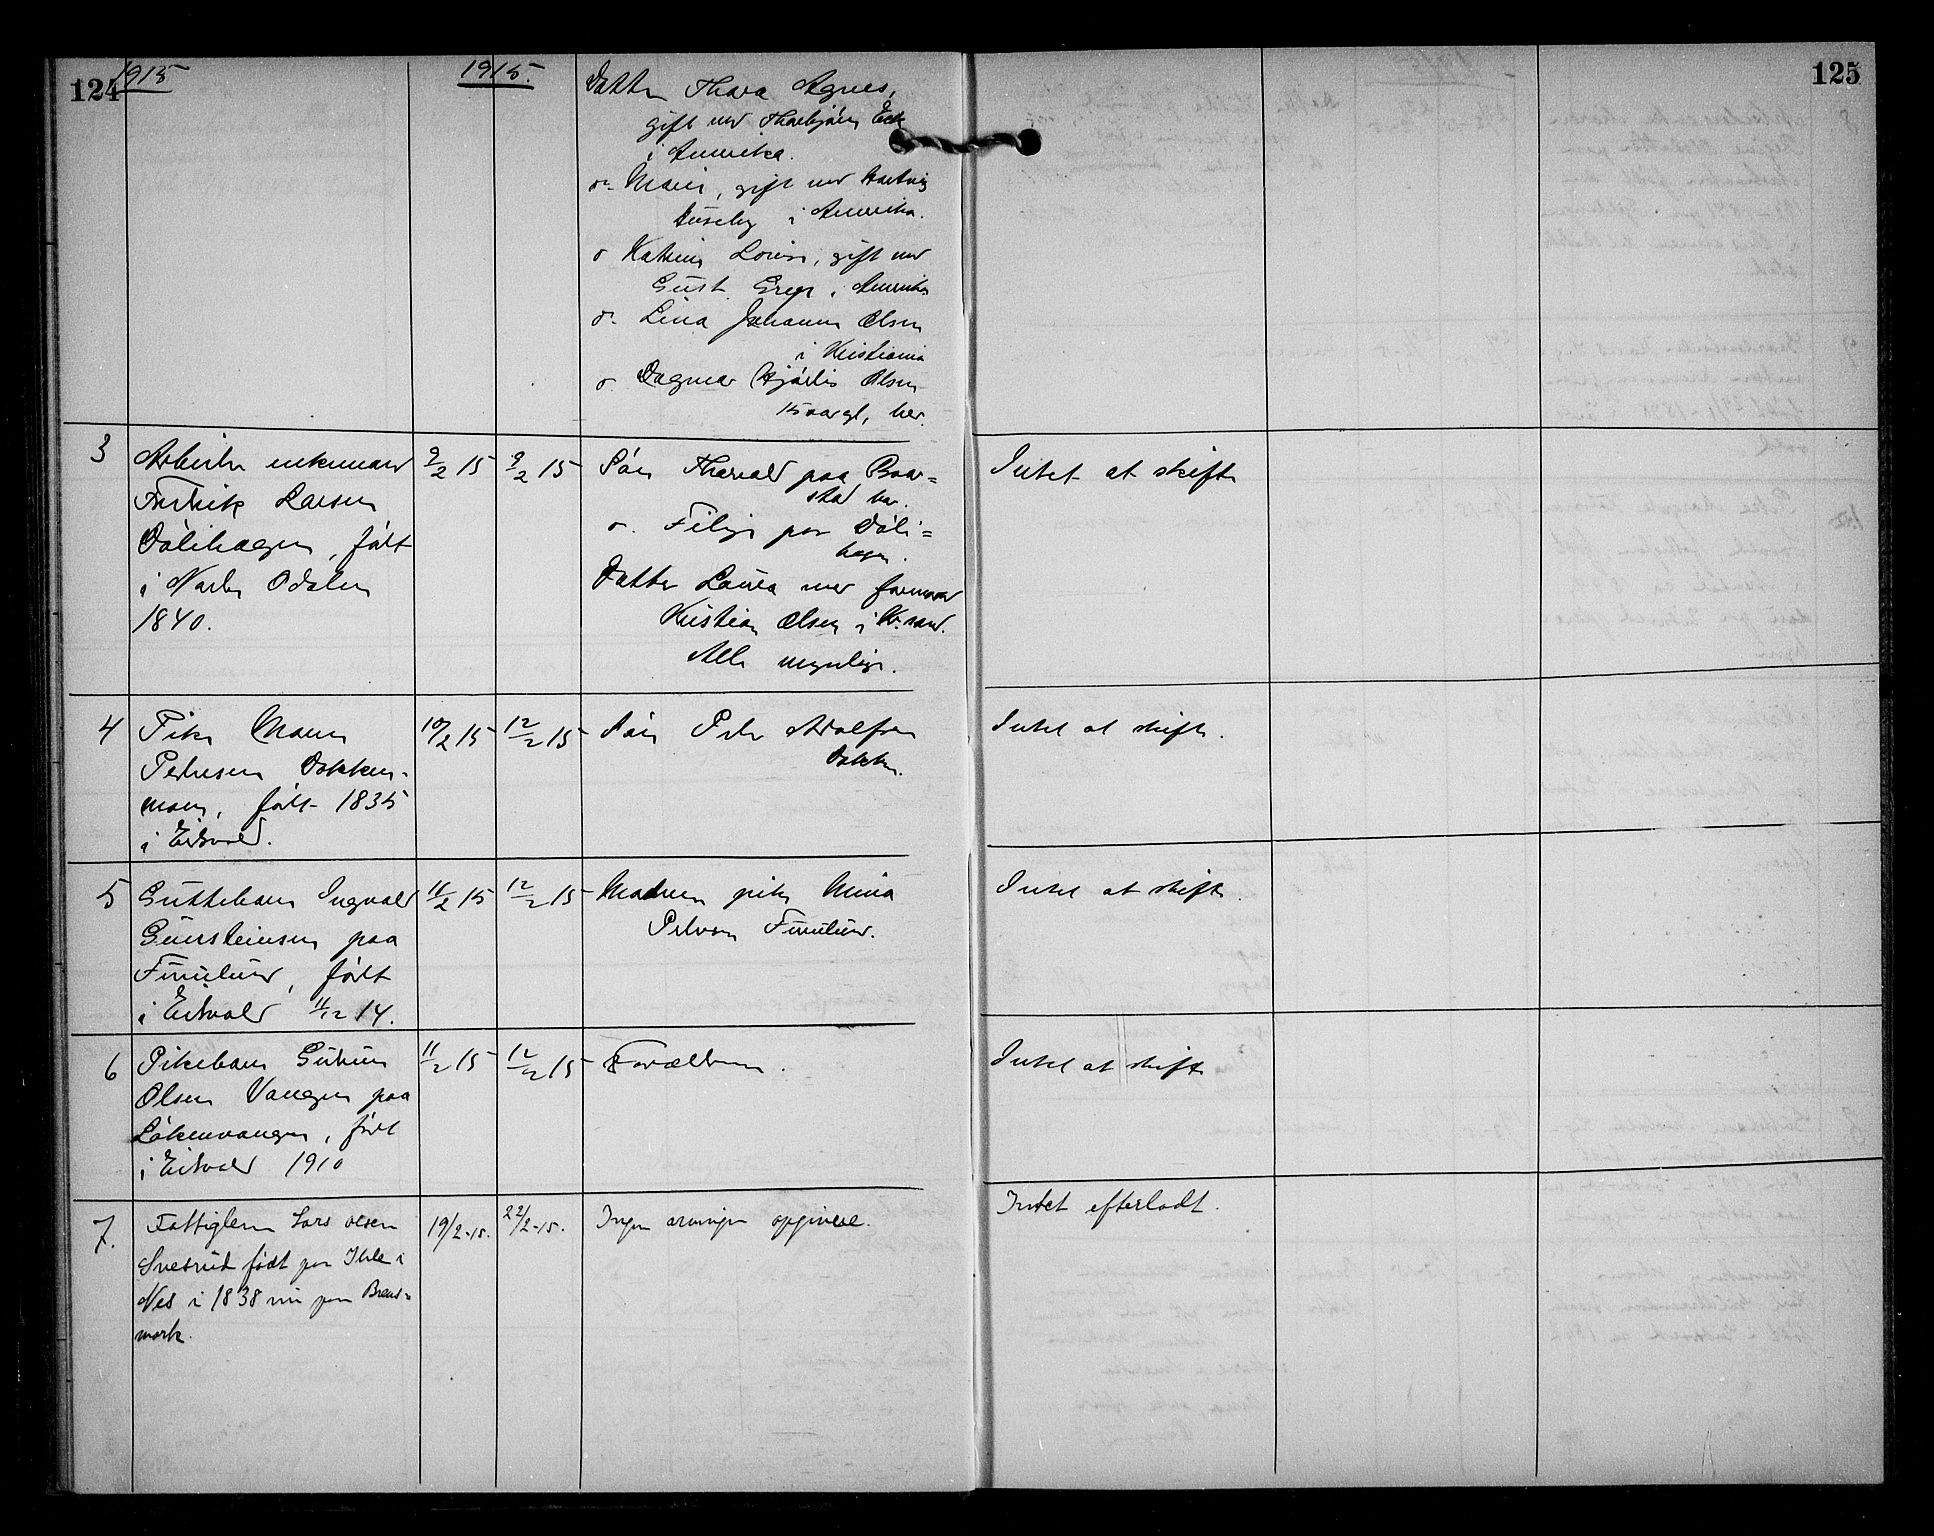 124
1915
1915.
125
Datter Thora Agnes,
gift med Thorbjørn Eck
i Amerika.
do Marie, gift med Hartvig
Huseby i Amerika.
do Katrine Lovise, gift med
Gust. i Amerika
do. Lina Johanne Olsen
i Kristiania
do. Dagmar Hjørdis Olsen
15 aar gl, her.
3
Arbeider enkemand
Fredrik Larsen
Dölihagen, født
i Nordre Odalen
1840.
9/2 15
9/2 15
Søn Thorvald paa Boar=
stad her.
do. Filip paa Döli=
hagen.
Datter Laura med formand
Kristian Olsen i Kr.sand.
Alle myndige.
Intet at skifte
4
Pike Maren
Pedersen Dokken-
moen, født 1835
i Eidsvold.
10/2 15
12/2 15
Søn Peder Adolfsen
Dokken.
Intet at skifte.
5
Guttebarn Ingvald
Gunsteinsen paa
Finnlund, født
i Eidsvold 11/12 14.
11/2 15
12/2 15
Moderen pike Mina
Petersen Finnlund.
Intet at skifte.
6
Pikebarn Gudrun
Olsen Vangen paa
Løkenvangen, født
i Eidsvold 1910
11/2 15
12/2 15
Forældrene.
Intet at skifte
7.
Fattiglem Lars Olsen
Svesrud født paa Ihle i
Nes i 1838 nu paa Brens=
mork.
19/2-15.
22/2-15.
Ingen arvinger opgivne.
Intet efterladt.